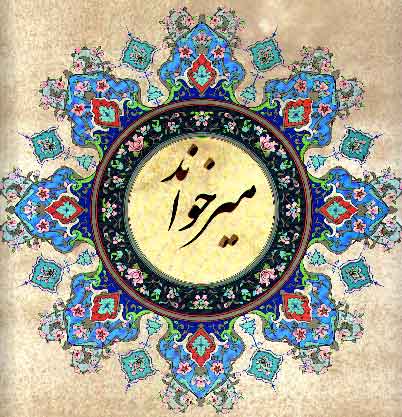 میرخواند